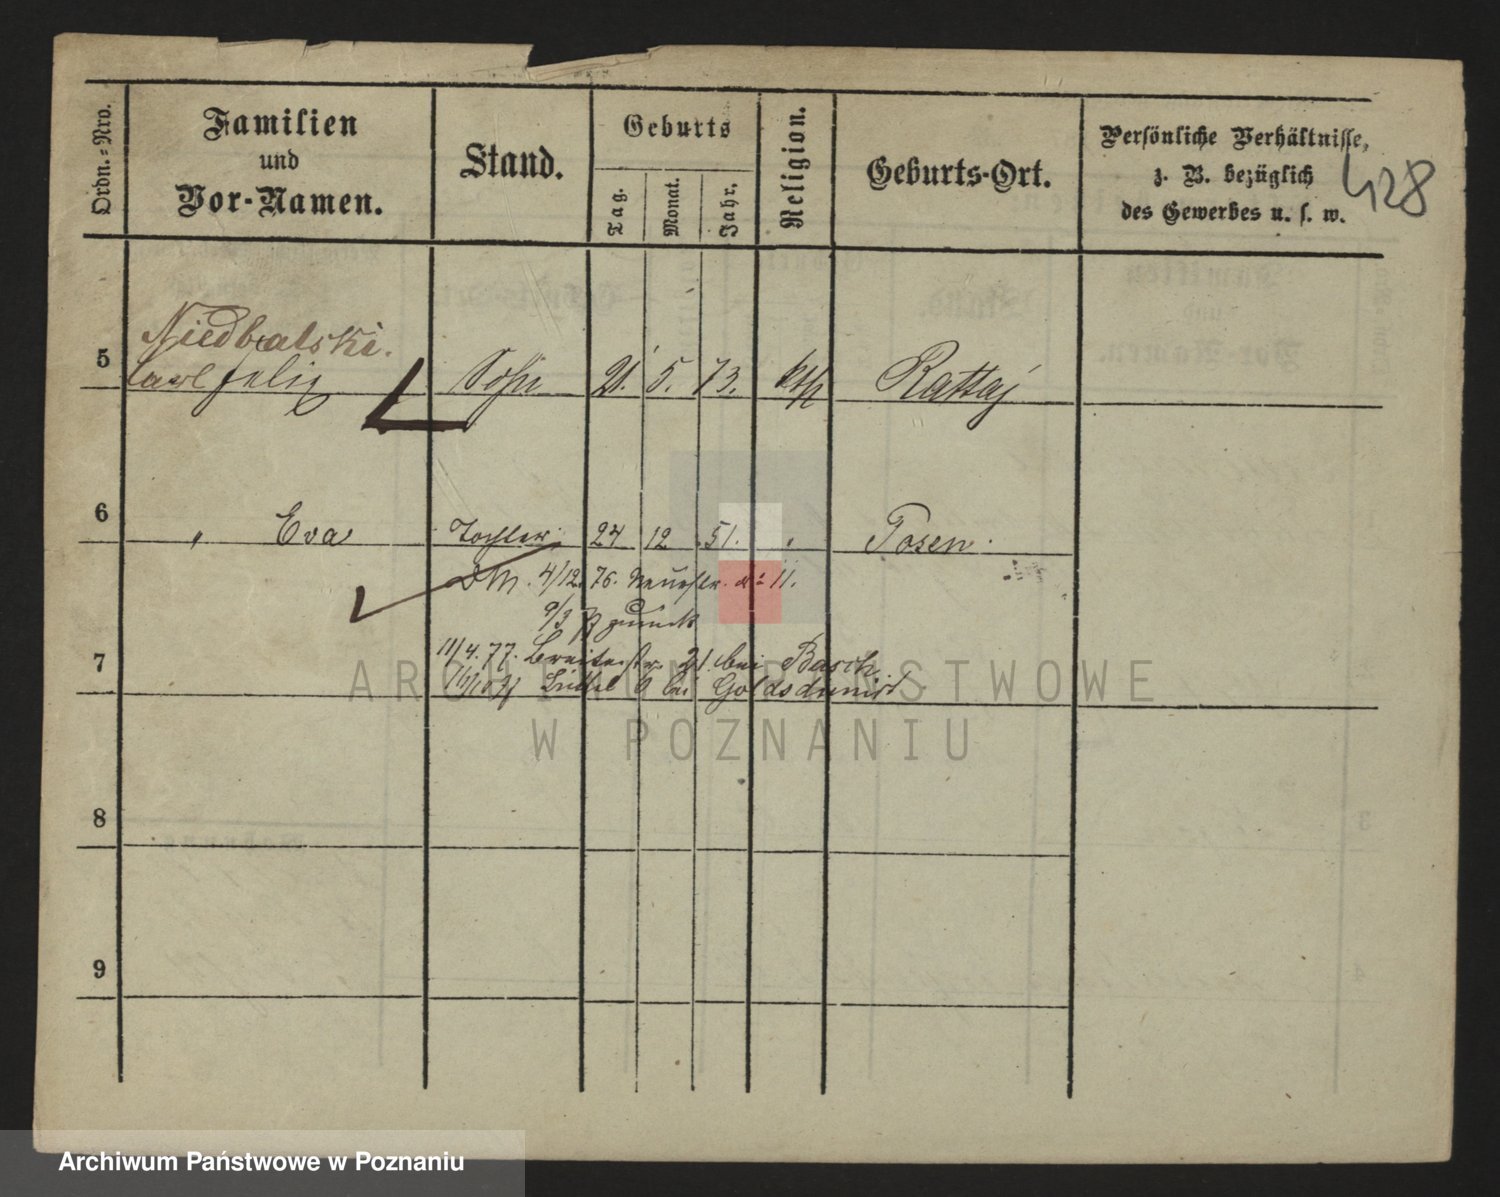 Ordn.-Nro.
Familien
und
Vor-Namen.
Stand.
Geburts
Tag.
Monat.
Jahr.
Religion.
Geburts-Ort.
Persönliche Verhältnisse,
z. B. bezüglich
des Gewerbes u. s. w.
428
Niedbalski.
5 Carl Felix Sohn 21. 5. 73. kth Rattaj
6 " Eva Tochter 24 12 51. " Posen.
4/12. 76. Neuestr. No 11.
9/3 zurück
7
11/4. 77. Breitestr. 21. bei Basch
6 bei Goldschmidt
8
9
ARCHIWUM PAŃSTWOWE
W POZNANIU
Archiwum Państwowe w Poznaniu